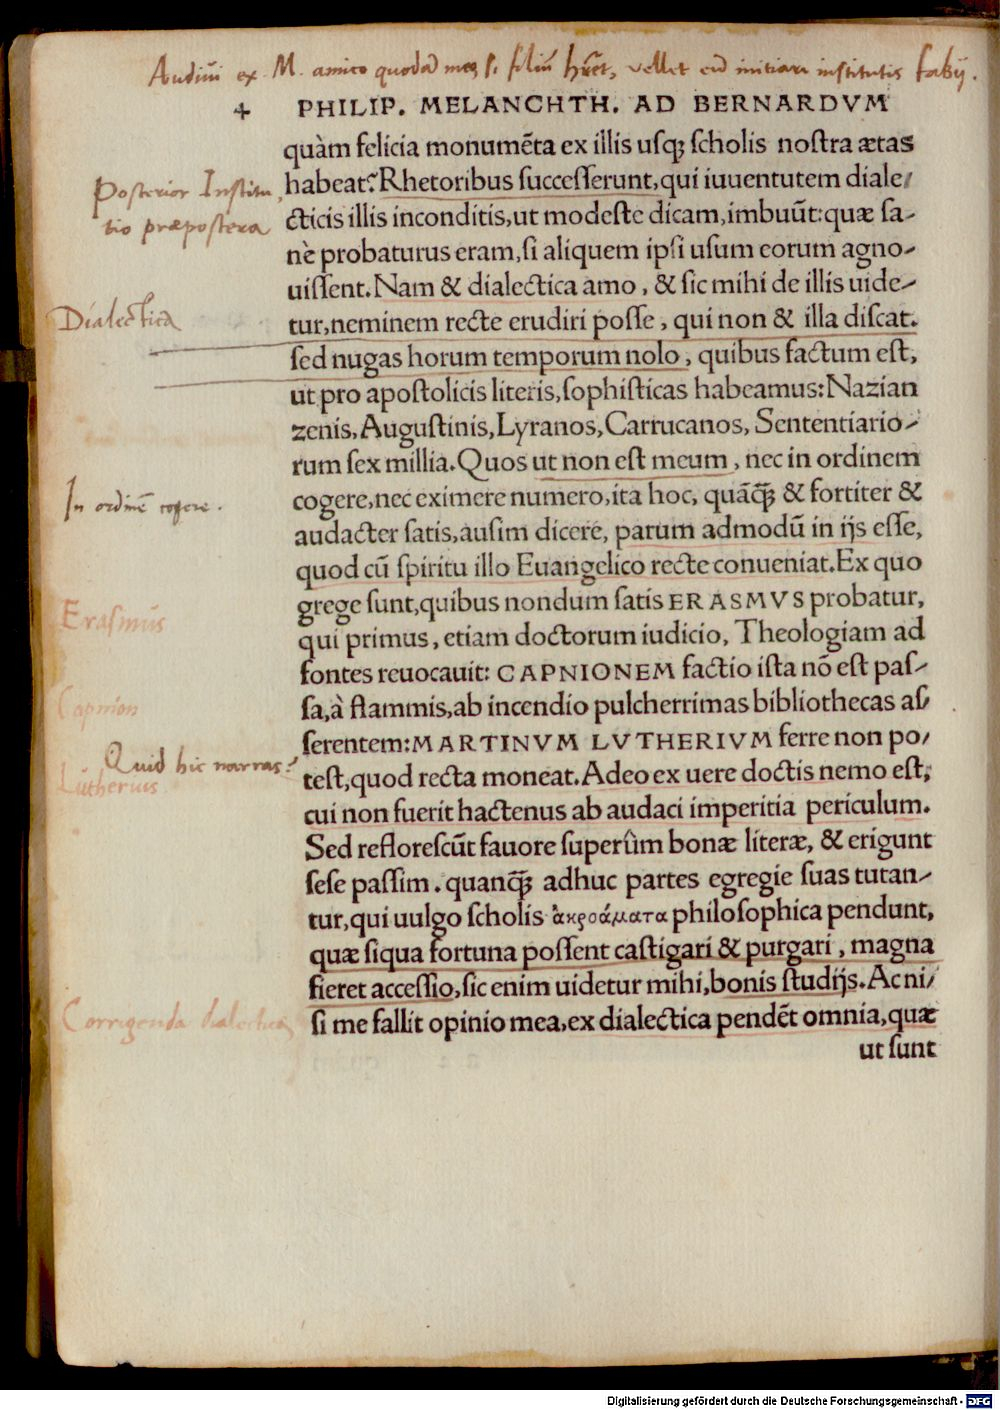 Audiui ex M. amico quodā meo, si filiū hret, vellet eū initiari institutis fabij.
4 PHILIP. MELANCHTH. AD BERNARDVM
quàm felicia monumēta ex illis usqꝫ scholis nostra ætas
Posterior Institu,
habeat? Rhetoribus successerunt, qui iuuentutem diale/
tio præpostera
cticis illis inconditis, ut modeste dicam, imbuūt: quæ sa-
nè probaturus eram, si aliquem ipsi usum eorum agno-
uissent. Nam & dialectica amo, & sic mihi de illis uide-
Dialectica
tur, neminem recte erudiri posse, qui non & illa discat.
sed nugas horum temporum nolo, quibus factum est,
ut pro apostolicis literis, sophisticas habeamus: Nazian
zenis, Augustinis, Lyranos, Carrucanos, Sententiario-
rum sex millia. Quos ut non est meum, nec in ordinem
In ordinē cogere.
cogere, nec eximere numero, ita hoc, quāqꝫ & fortiter &
audacter satis, ausim dicere, parum admodū in ijs esse,
quod cū spiritu illo Euangelico recte conueniat. Ex quo
Erasmus
grege sunt, quibus nondum satis ERASMVS probatur,
qui primus, etiam doctorum iudicio, Theologiam ad
fontes reuocauit: CAPNIONEM factio ista nō est pas-
Capnion
sa, à flammis, ab incendio pulcherrimas bibliothecas as/
serentem: MARTINVM LVTHERIVM ferre non po/
Quid hic narras?
Lutherus
test, quod recta moneat. Adeo ex uere doctis nemo est,
cui non fuerit hactenus ab audaci imperitia periculum.
Sed reflorescūt fauore superûm bonæ literæ, & erigunt
sese passim. quanqꝫ adhuc partes egregie suas tutan-
tur, qui uulgo scholis ἀκροάματα philosophica pendunt,
quæ siqua fortuna possent castigari & purgari, magna
fieret accessio, sic enim uidetur mihi, bonis studijs. Ac ni/
Corrigenda dialectica
si me fallit opinio mea, ex dialectica pendēt omnia, quæ
ut sunt
Digitalisierung gefördert durch die Deutsche Forschungsgemeinschaft - DFG